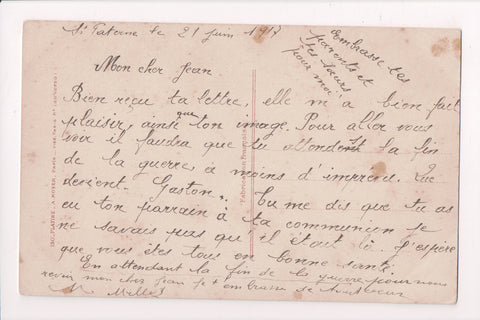 St Paterne le 21 juin 1917
Embrasse tes
parents et
tes sœurs
pour moi
Mon cher Jean.
Bien reçu ta lettre, elle m'a bien fait
plaisir, ainsi que ton image. Pour aller vous
voir il faudra que tu attendes la fin
de la guerre, à moins d'imprévu. Que
devient Gaston. Tu me dis que tu as
eu ton parrain à ta communion je
ne savais pas qu'il était là. J'espère
que vous êtes tous en bonne santé.
En attendant la fin de la guerre pour nous
revoir mon cher Jean je t'embrasse
M.
Fabrication Française